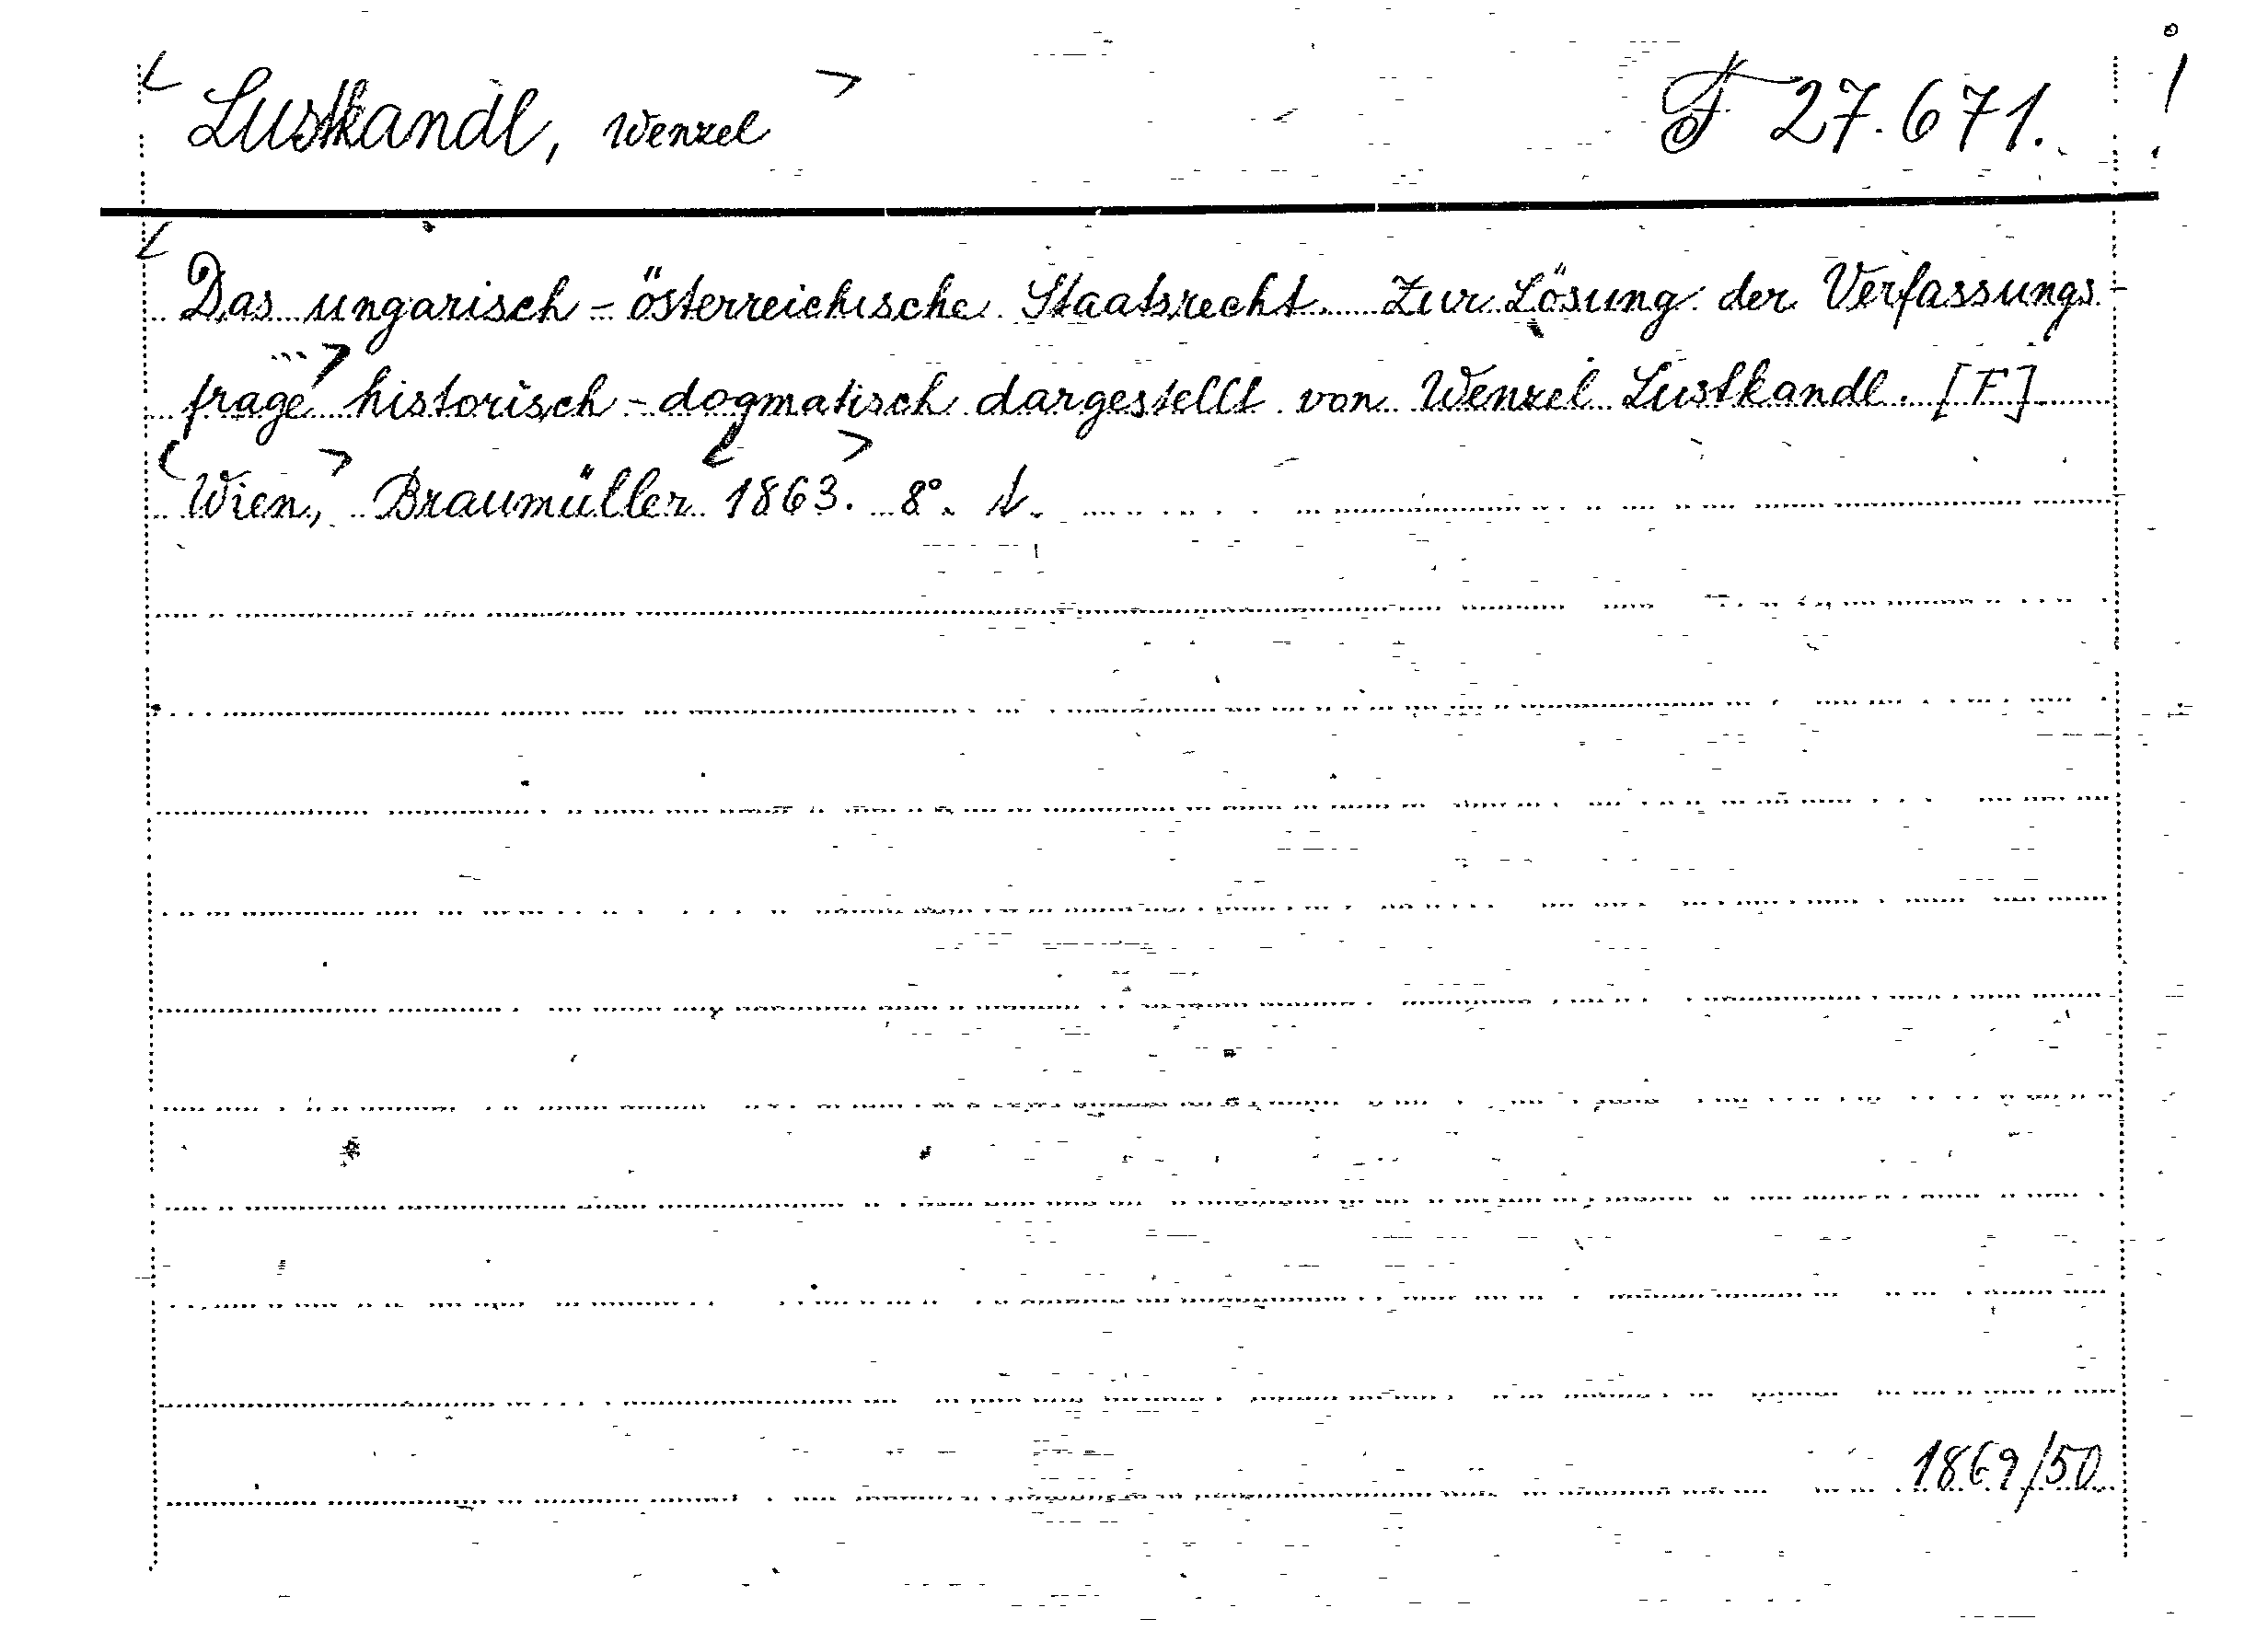 Lustkandl, Wenzel F 27.671. !
Das ungarisch-österreichische Staatsrecht. Zur Lösung der Verfassungs-
frage historisch-dogmatisch dargestellt von Wenzel Lustkandl. [F]
Wien, Braumüller 1863. 8°.
1869/50